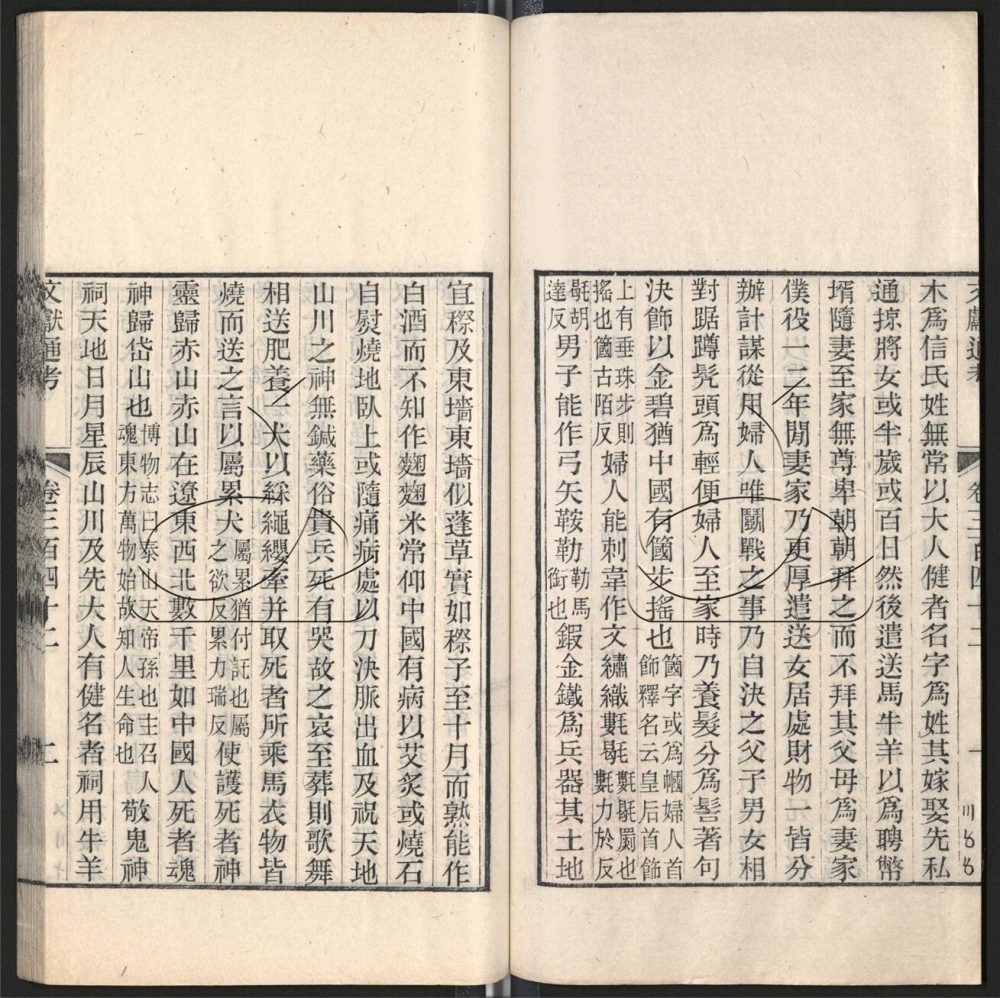 木爲信氏姓無常以大人健者名字爲姓其嫁娶先私
通掠將女或半歲或百日然後遣送馬牛羊以爲聘幣
壻隨妻至家無尊卑朝朝拜之而不拜其父母爲妻家
僕役一二年閒妻家乃更厚遣送女居處財物一皆分
辦計謀從用婦人唯鬭戰之事乃自決之父子男女相
對踞蹲髡頭爲輕便婦人至家時乃養髮分爲髻著句
決飾以金碧猶中國有簂步搖也簂字或爲幗婦人首飾釋名云皇后首飾
上有垂珠步則搖也簂古陌反婦人能刺韋作文繡織㲣毼㲣毼罽也㲣力於反
毼胡達反男子能作弓矢鞍勒勒馬銜也鍜金鐵爲兵器其土地
文獻通考
卷三百四十二
一
宜穄及東墻東墻似蓬草實如穄子至十月而熟能作
白酒而不知作麴麴米常仰中國有病以艾炙或燒石
自熨燒地臥上或隨痛病處以刀決脈出血及祝天地
山川之神無鍼藥俗貴兵死有哭故之哀至葬則歌舞
相送肥養一犬以綵繩纓牽并取死者所乘馬衣物皆
燒而送之言以屬累犬屬累猶付託也屬之欲反累力瑞反使護死者神
靈歸赤山赤山在遼東西北數千里如中國人死者魂
神歸岱山也博物志曰泰山天帝孫也主召人魂東方萬物始故知人生命也敬鬼神
祠天地日月星辰山川及先大人有健名者祠用牛羊
文獻通考
卷三百四十二
二